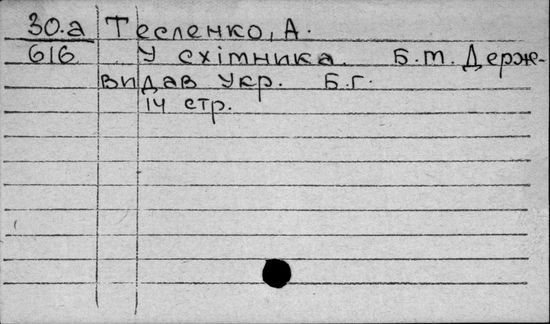 30.а Тесленко, А.
616 У схімника. Б.м. Держ-
видав Укр. Б.г.
14 стр.